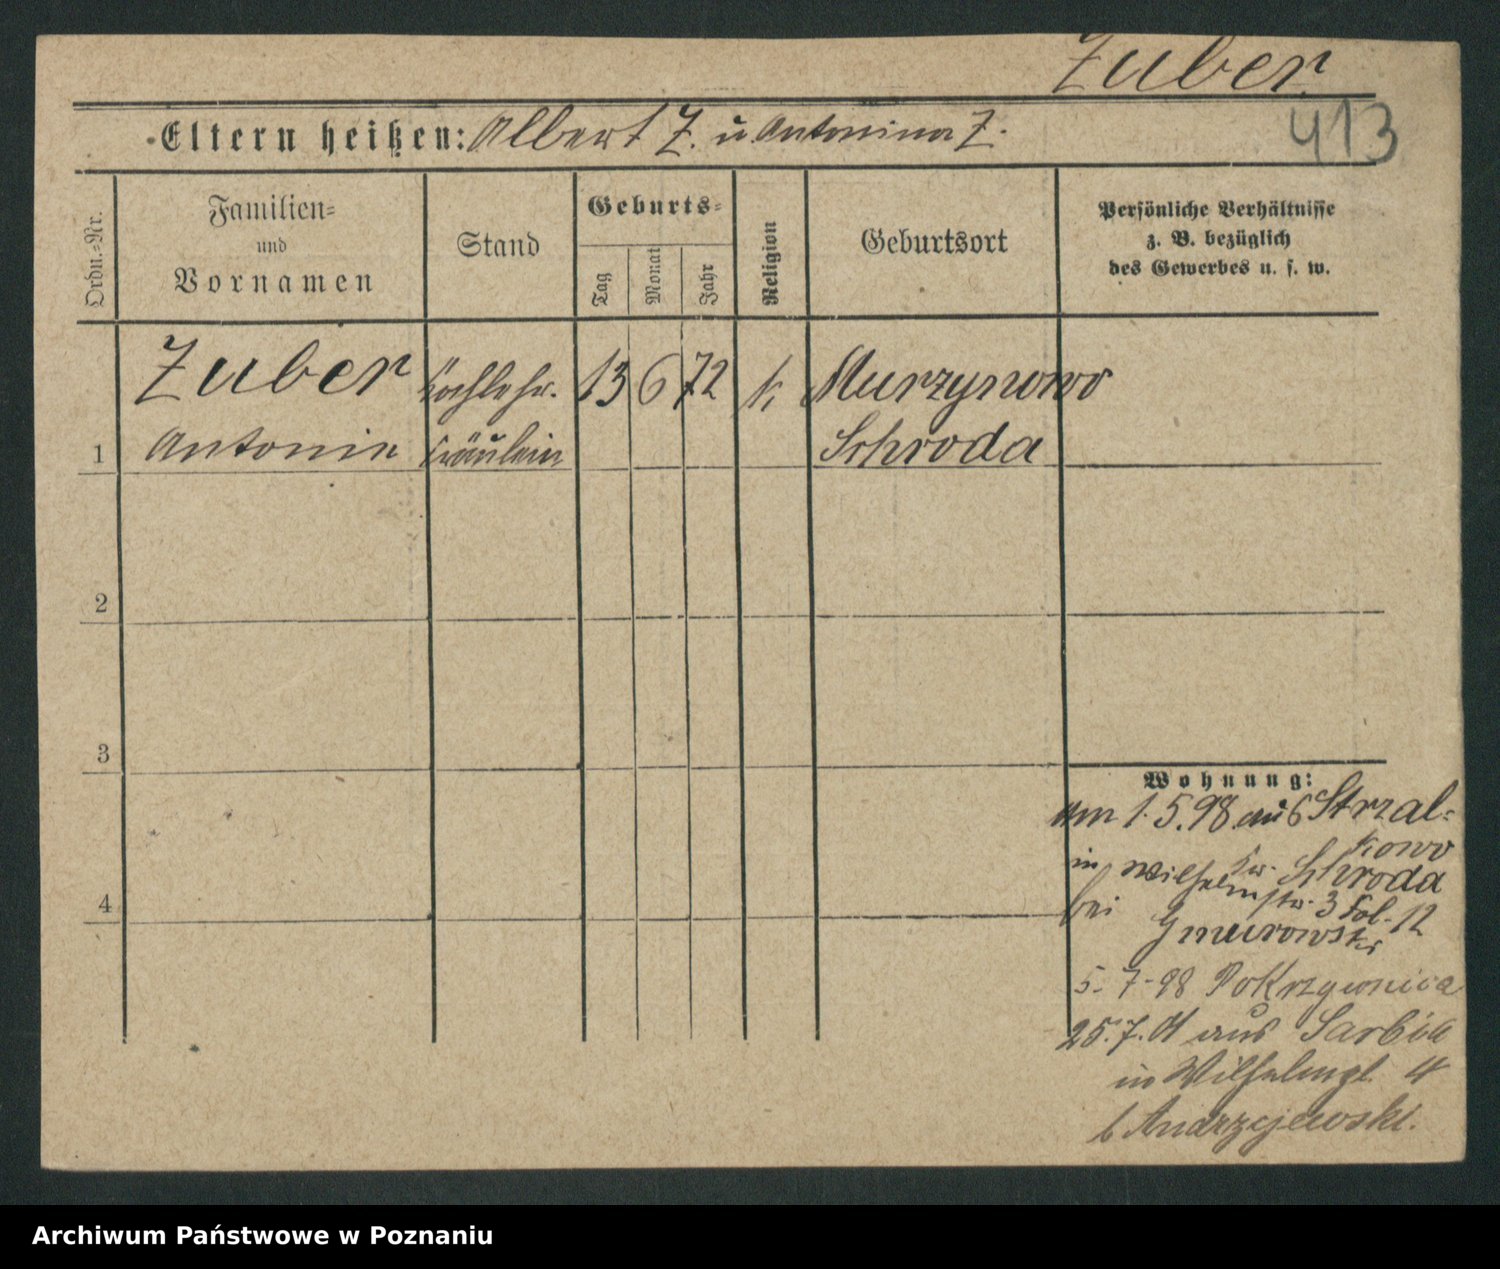 Zuber
413
Eltern heißen: Albert Z. u. Antonina Z.
Ordn.-Nr.
Familien-
und
Vornamen
Stand
Geburts-
Tag
Monat
Jahr
Religion
Geburtsort
Persönliche Verhältnisse
z. B. bezüglich
des Gewerbes u. s. w.
Zuber
Kochlehr.
13 6 72
k.
Murzynowo
1
Antonie
fräulein
Schroda
2
3
4
Wohnung:
am 1.5.98 aus Strzal-
kowo
Kr. Schroda
in Wilhelmstr. 3 Fol. 12
bei Gmurowski
5.7.98 Pokrzywnica
25.7.01 aus Sarbia
in Wilhelmpl. 4
b Andrzejewski.
Archiwum Państwowe w Poznaniu